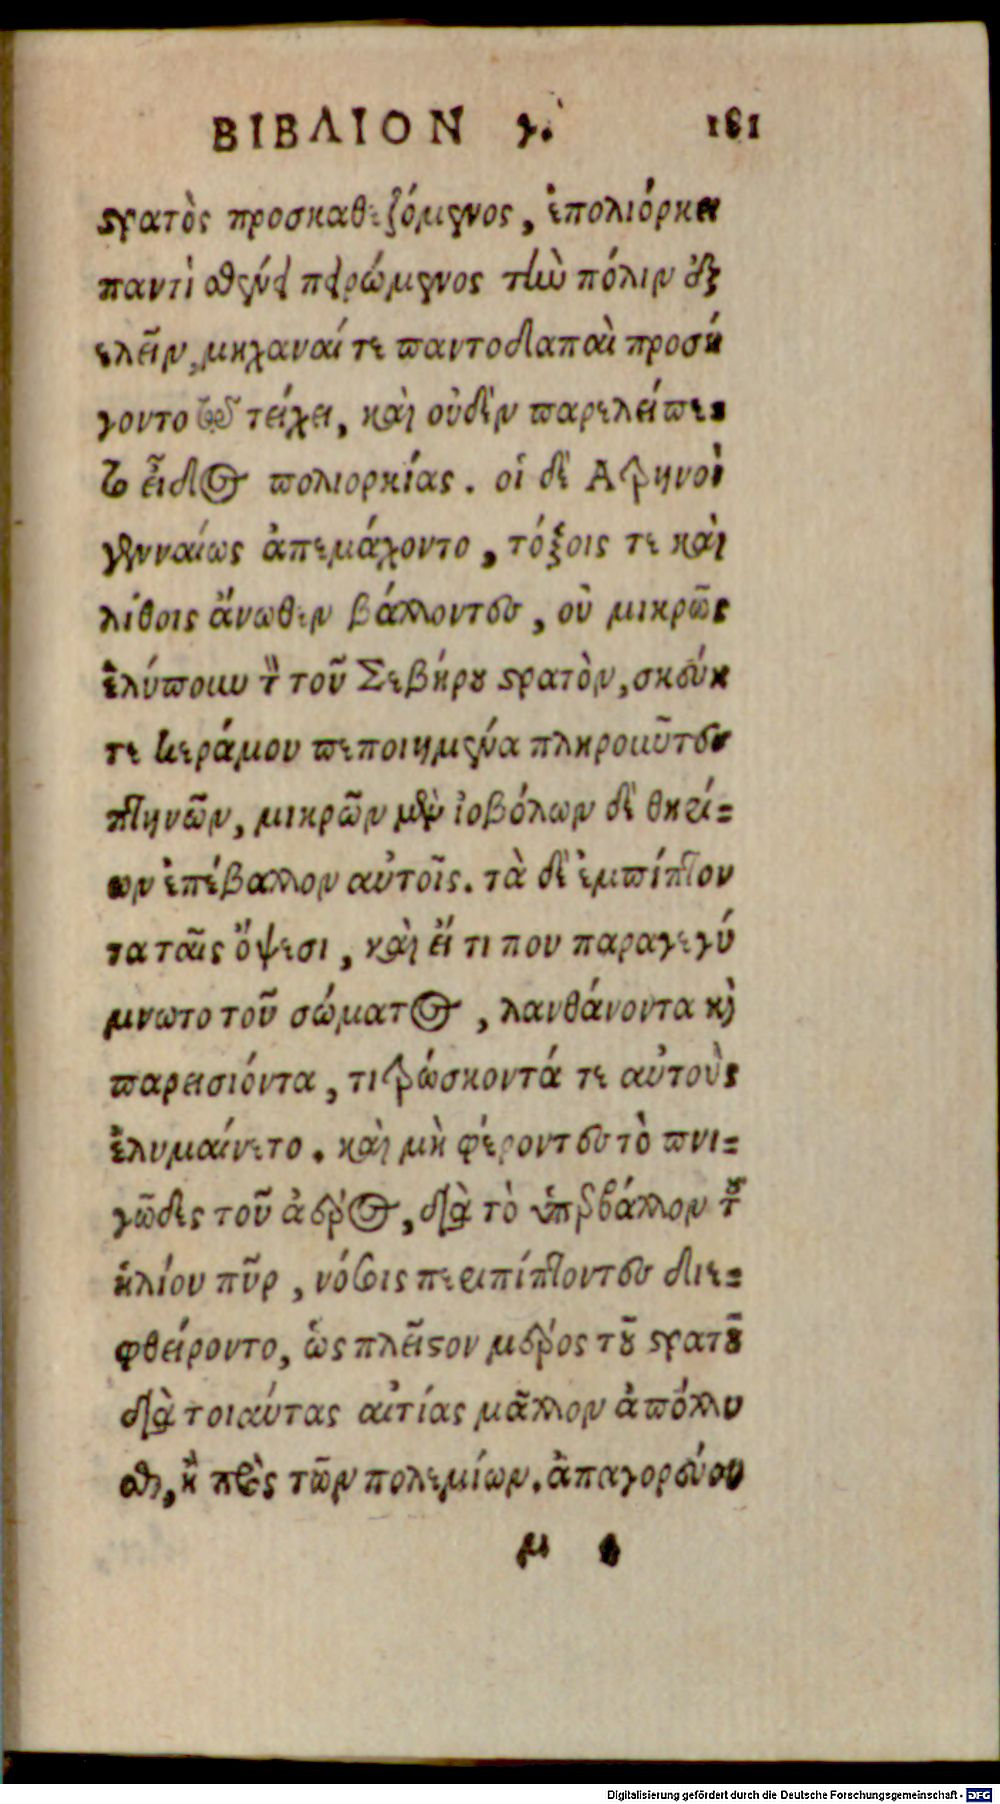 ΒΙΒΛΙΟΝ γ. 181
στρατὸς προσκαθεζόμενος, ἐπολιόρκει
παντὶ σθένει πειρώμενος τὴν πόλιν ἐξ
ελεῖν, μηχαναί τε παντοδαπαὶ προσή
γοντο τῷ τείχει, καὶ οὐδὲν παρελείπετο
τὸ εἶδος πολιορκίας. οἱ δὲ Ατρηνοὶ
γενναίως ἀπεμάχοντο, τόξοις τε καὶ
λίθοις ἄνωθεν βάλλοντες, οὐ μικρῶς
ἐλύπουν τὸν τοῦ Σεβήρου στρατὸν, σκεύη
τε κεράμου πεποιημένα πληροῦντες
πτηνῶν, μικρῶν μὲν ἰοβόλων δὲ θηρί=
ων ἐπέβαλλον αὐτοῖς. τὰ δὲ ἐμπίπτον
τα ταῖς ὄψεσι, καὶ εἴ τι που παραγεγύ
μνωτο τοῦ σώματος, λανθάνοντα καὶ
παρεισιόντα, τιτρώσκοντά τε αὐτοὺς
ἐλυμαίνετο. καὶ μὴ φέροντες τὸ πνι=
γῶδες τοῦ ἀέρος, διὰ τὸ ὑπερβάλλον τοῦ
ἡλίου πῦρ, νόσοις περιπίπτοντες διε=
φθείροντο, ὡς πλεῖστον μέρος τοῦ στρατοῦ
διὰ τοιαύτας αἰτίας μᾶλλον ἀπόλλυ
σθαι, ἢ πρὸς τῶν πολεμίων. ἀπαγορεύου
μ